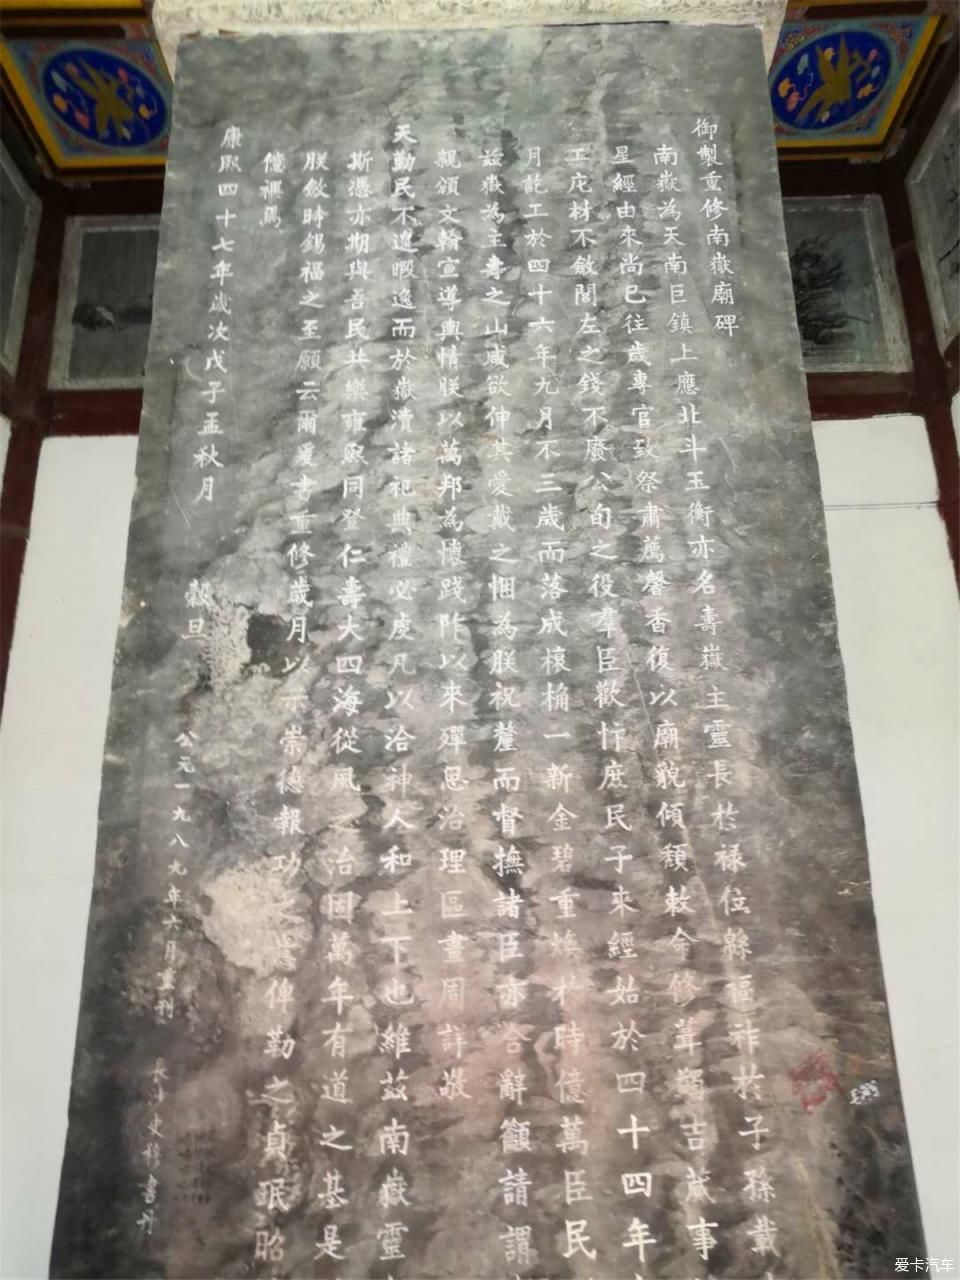 御製重修南嶽廟碑
南嶽為天南巨鎮上應北斗玉衡亦名壽嶽主靈長於祿位綿福祚於子孫載
星經由來尚已往歲專官致祭肅薦馨香復以廟貌傾頹敕令修葺蠲吉蕆事
工庀材不斂閭左之錢不廢公旬之役羣臣歡忭庶民子來經始於四十四年
月訖工於四十六年九月不三歲而落成榱桷一新金碧重煥於時億萬臣民
茲嶽為主壽之山咸欲伸其愛戴之悃為朕祝釐而督撫諸臣亦合辭籲請謂
親頒文翰宣導輿情朕以萬邦為懷踐阼以來殫思治理區畫周詳敬
天勤民不遑暇逸而於嶽瀆諸祀典禮必虔凡以洽神人和上下也維茲南嶽靈
斯憑亦期與吾民共樂雍熙同登仁壽大四海從風之治固萬年有道之基是
朕斂時錫福之至願云爾爰書重修歲月以示崇德報功之意俾勤之貞珉昭
億禩焉
康熙四十七年歲次戊子孟秋月 穀旦
公元一九八九年六月重刊
書刊
爱卡汽车